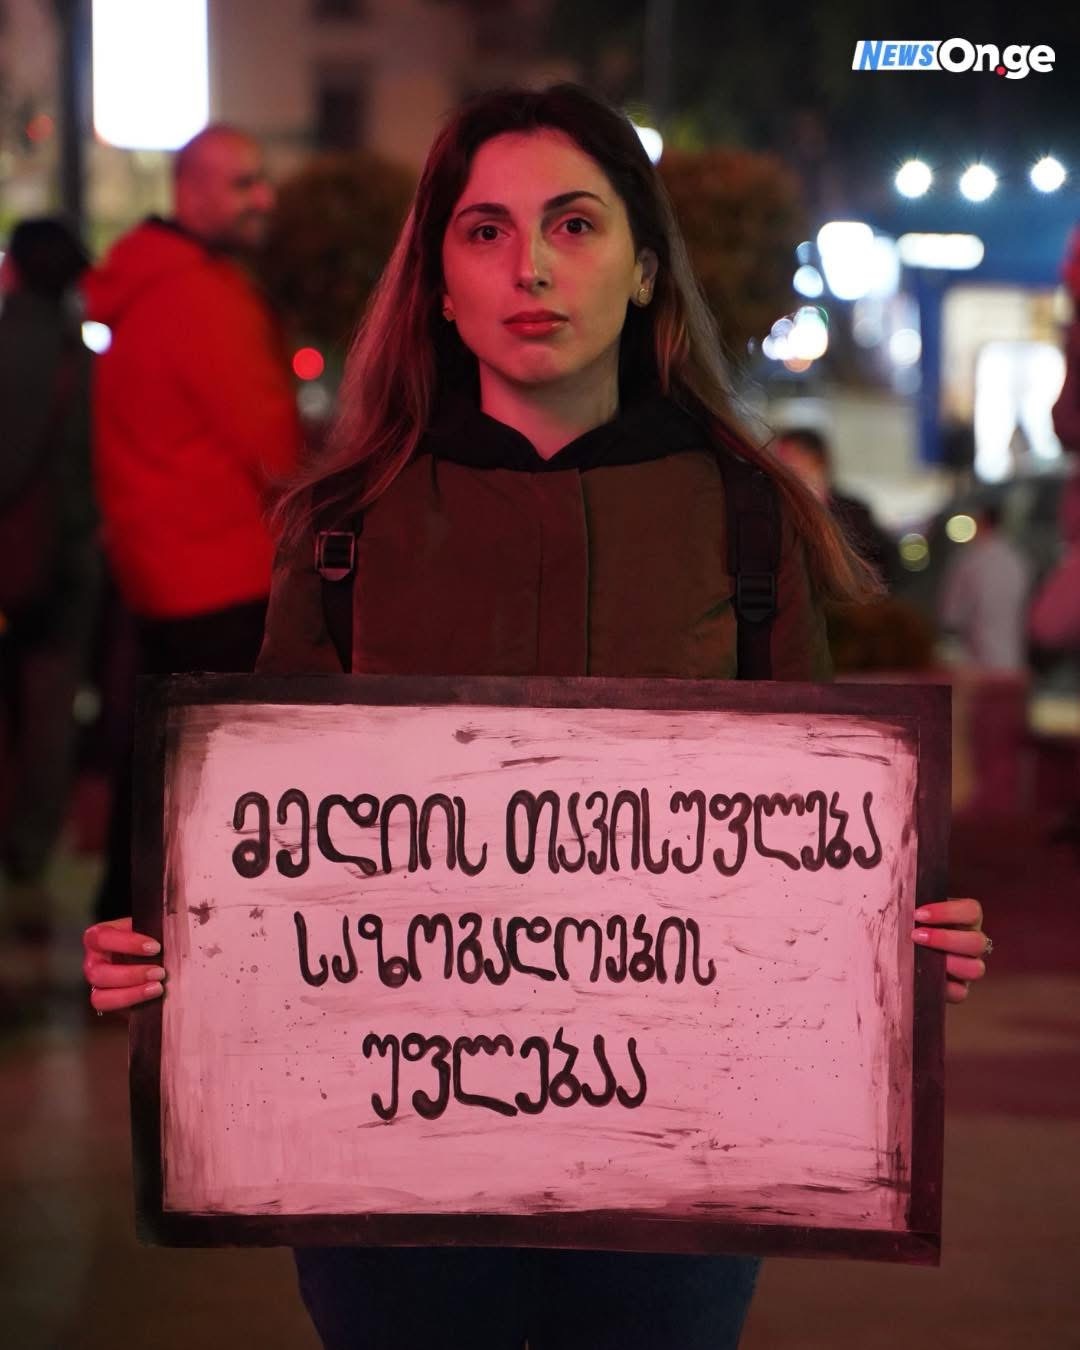 NEWS On.ge
მედიის თავისუფლება
საზოგადოების
უფლებაა